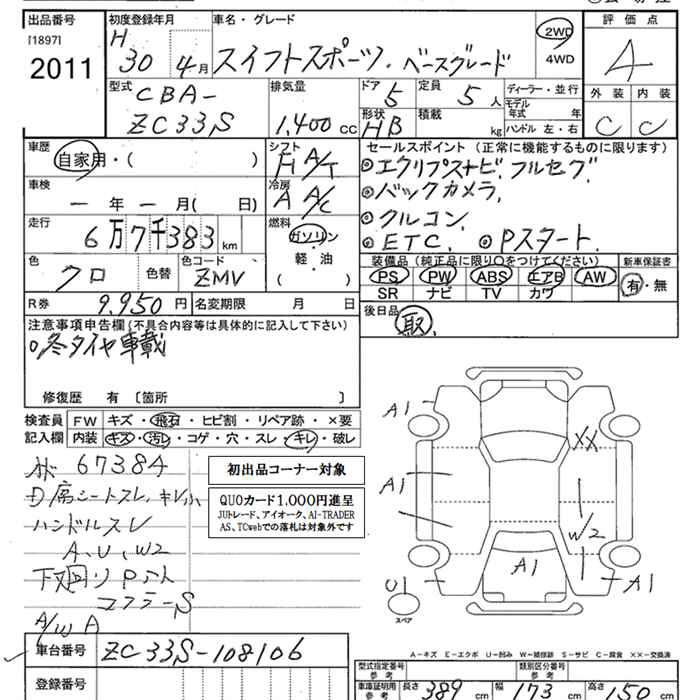 出品番号 初度登録年月 車名・グレード 評価点
[1897] H
2011 30 4月 スイフトスポーツ・ベースグレード 2WD 4WD 4
型式 排気量 ドア 定員 ディーラー・並行 外装 内装
CBA- 5 5人 モデル年式 年
ZC33S 1,400cc 形状 HB 積載 kg ハンドル 左・右 C C
車歴 シフト セールスポイント (正常に機能するものに限ります)
自家用・( ) A/T ◎エクリプスナビ、フルセグ、
車検 冷房 ◎バックカメラ、
ー年ー月( 日) A A/C ◎クルコン
走行 燃料 ◎ETC、 ◎Pスタート、
6万7千383km ガソリン 装備品(純正品に限り〇をつけてください) 新車保証書
色 色替 色コード 軽・油 PS PW ABS エアB AW 有・無
クロ ZMV ( ) SR ナビ TV カワ
R券 9,950円 名変期限 月 日 後日品
注意事項申告欄(不具合内容等は具体的に記入して下さい) 取
◦冬タイヤ車載
修復歴 有〔箇所 〕
検査員 FW キズ・飛石・ヒビ割・リペア跡・×要
記入欄 内装 キズ・汚レ・コゲ・穴・スレ・キレ・破レ
67384
席シートスレ、キレ
ハンドルスレ
A、U、W2
下廻り
S
A/W A
初出品コーナー対象
QUOカード1,000円進呈
JUトレード、アイオーク、AI-TRADER
AS、TCwebでの落札は対象外です
A1
XX
A1
W2
A1
U1
A1
スペア
A-キズ E-エクボ U-凹み W-補修跡 S-サビ C-腐食 XX-交換済
車台番号 ZC33S-108106
型式指定番号 参考 類別区分番号 参考
登録番号
車庫証明用 参考 長さ 389cm 幅 173cm 高さ 150cm